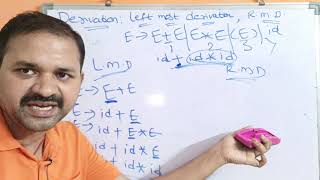 Derivation: Left most derivation, R.M.D
E → E+E | E*E | (E) | id
1 2 3 4
id + (id * id)
L.M.D R.M.D
E → E+E
E → id + E
→ id + E*E
id + id * E
+ id * id